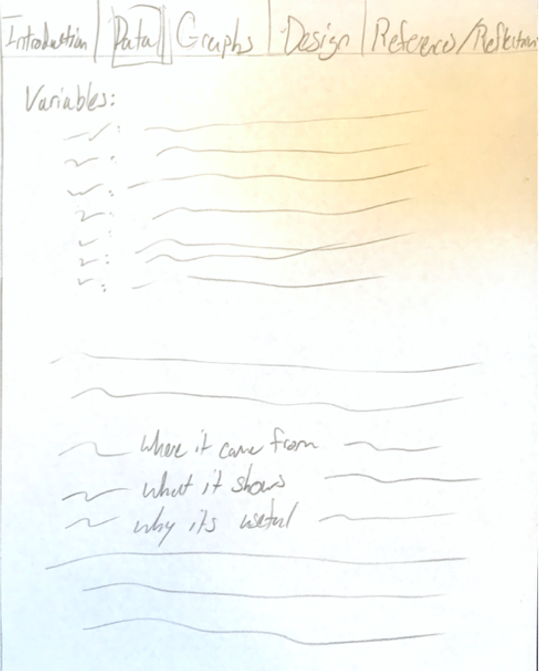 Introduction Data Graphs Design References/Reflection
Variables:
where it came from
what it shows
why its useful